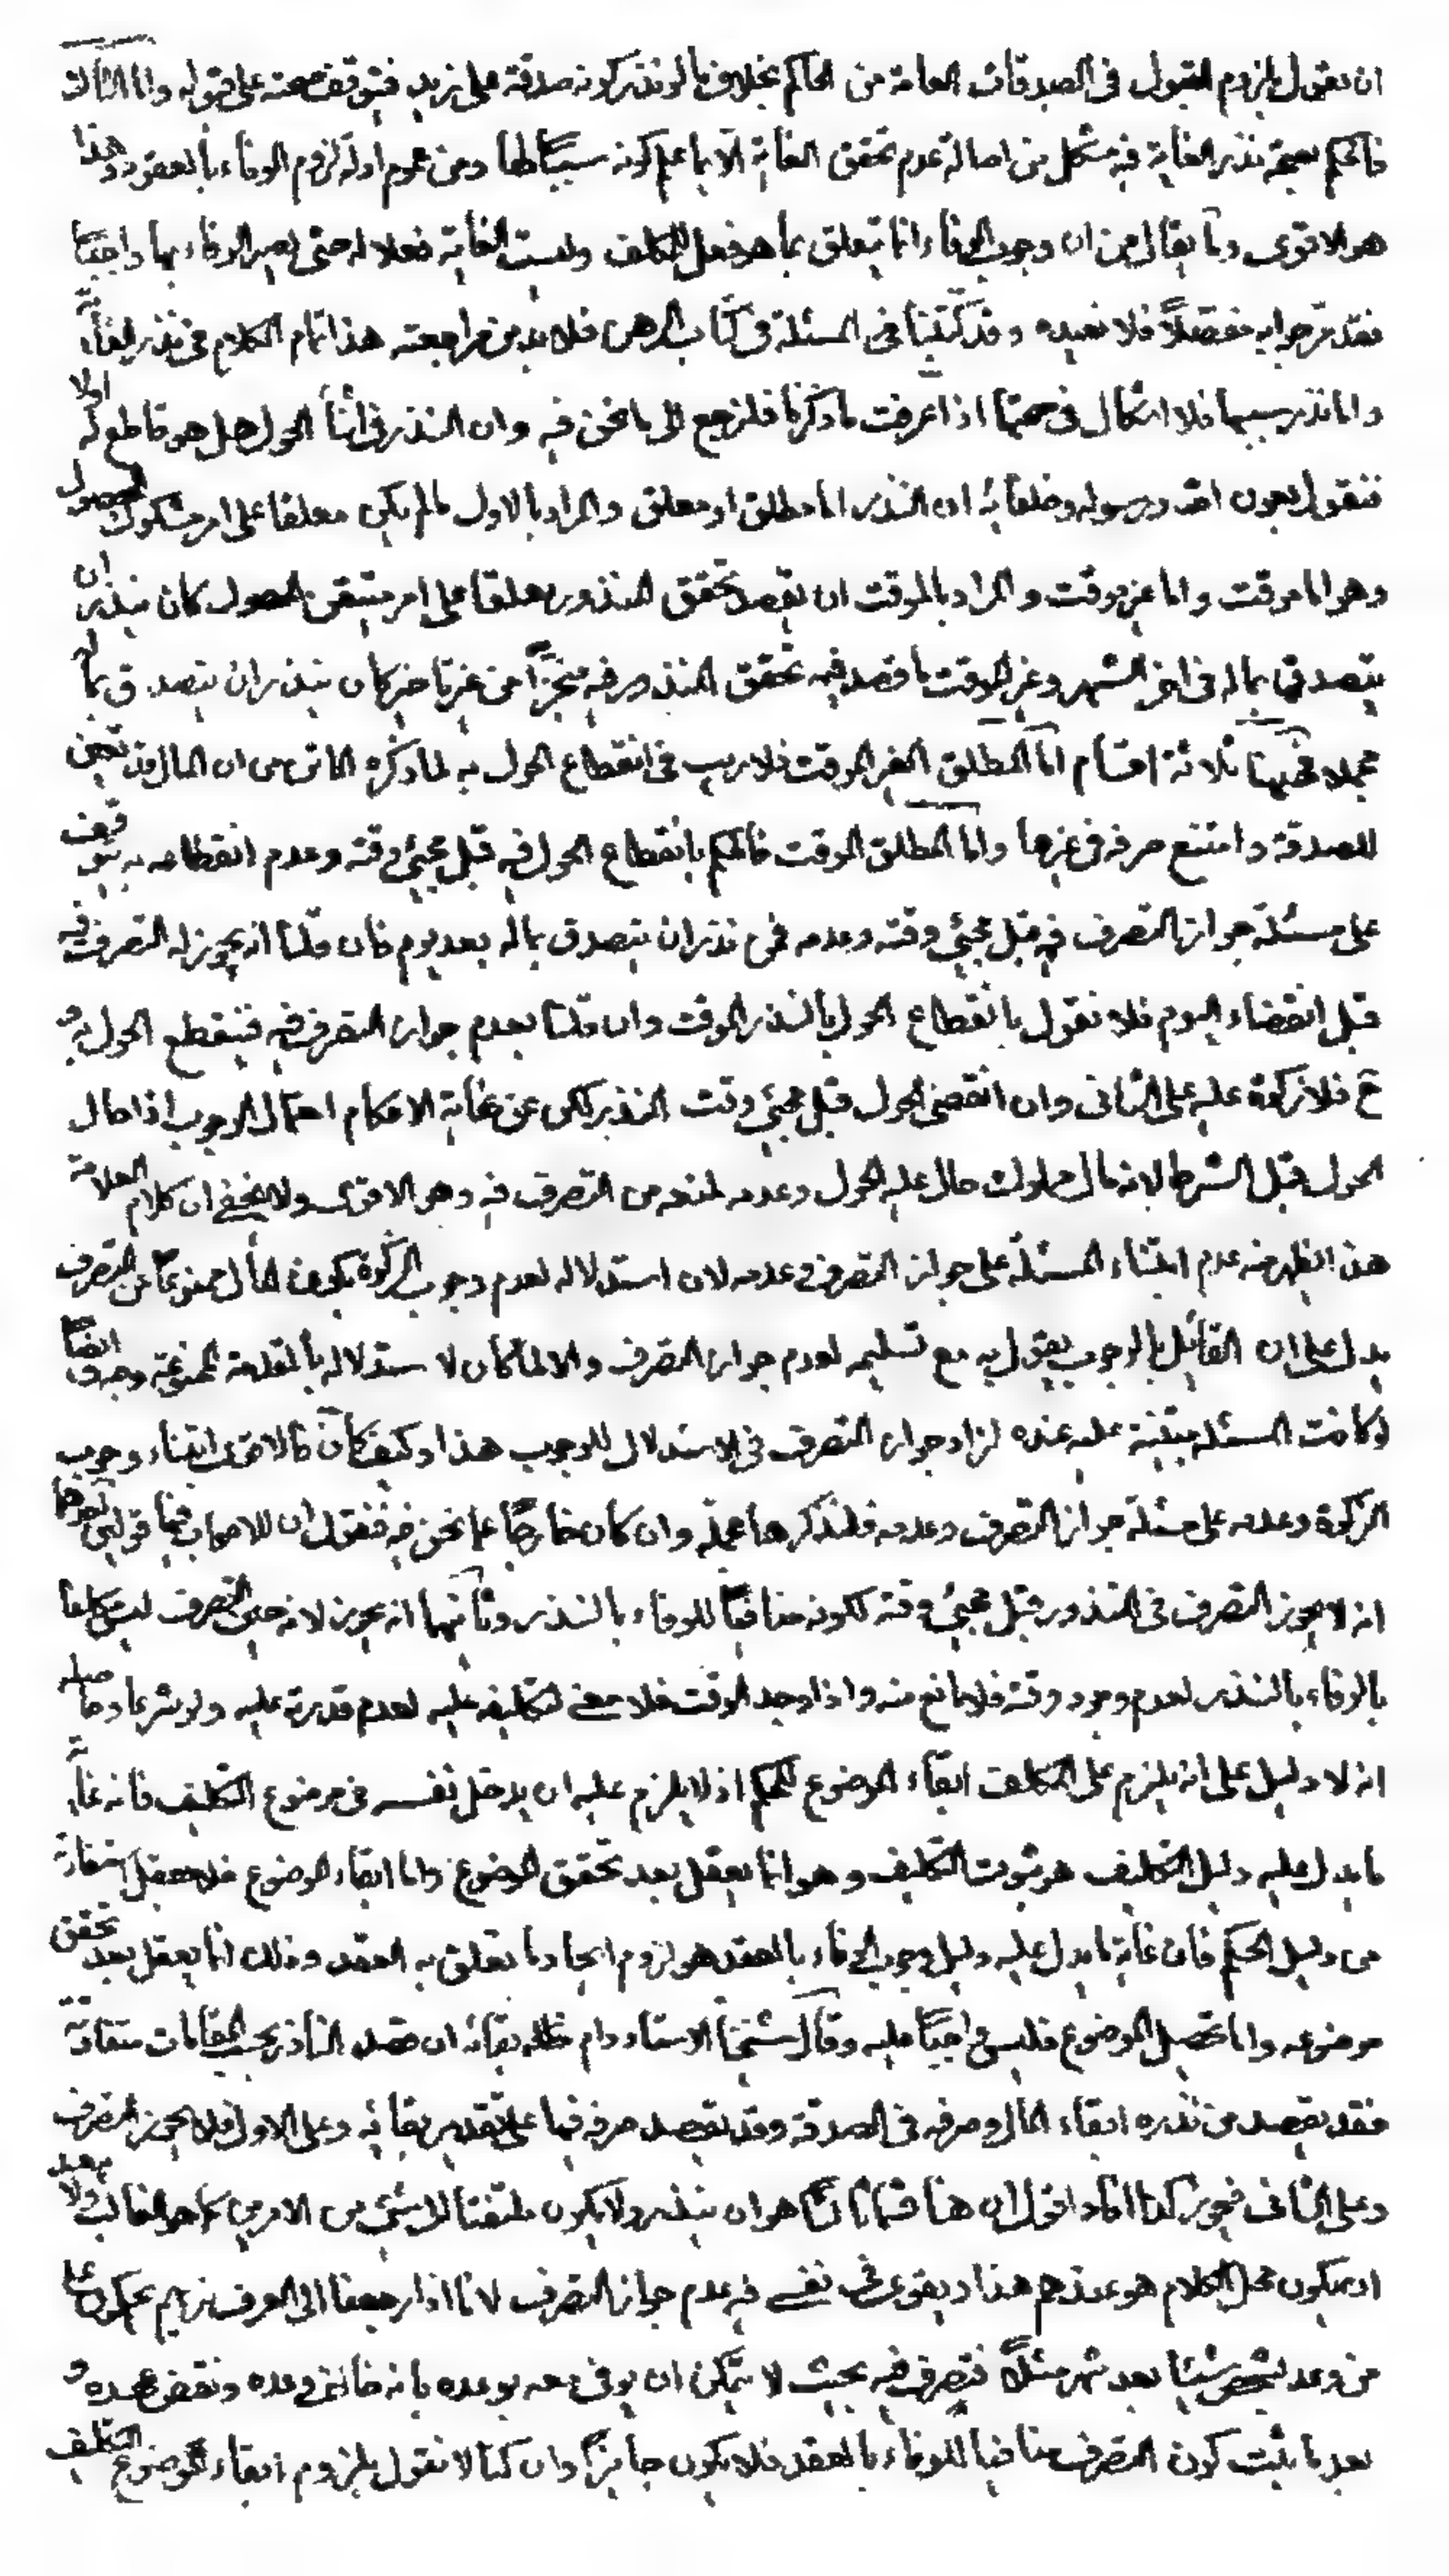 ان نقول بلزوم القبول فى الصدقات العامة من الحاكم بخلاف ما لو نذر كونه صدقة على زيد فيتوقف صحته على قبوله واما الثالث
فالحكم بصحة نذر الغاية فيه مشكل من اصالة عدم تحقق الغاية الا بما علم كونه سببًا لها ومن عموم ادلة لزوم الوفاء بالعقود وهذا
هو الاقوى وما يقال من ان وجوب الوفاء انما يتعلق بما هو فعل المكلف وليست الغاية فعلا له حتى يصير الوفاء بها واجبًا
فقد مرّ جوابه مفصّلاً فلا نعيده وقد كتبنا فى المسئلة فى كتاب الرهن فلا بد من مراجعته هذا تمام الكلام فى نذر الغاية
واما نذر سببها فلا اشكال فى صحتها اذا عرفت ما ذكرنا فلنرجع الى ما نحن فيه وان النذر فى اثناء الحول هل هو قاطع له اولا
فنقول بعون الله ورسوله وخلفائه ان النذر اما مطلق او معلق والمراد بالاول ما لم يكن معلقا على امر مشكوك الحصول
وهو اما موقت واما غير موقت والمراد بالموقت ان يقصد تحقق المنذور معلقا على امر متيقن الحصول كان ينذر ان
يتصدق بماله فى اخر الشهر وغير الموقت ما قصد فيه تحقق المنذور فيه منجزًا من غير تاخير كان ينذر ان يتصدق بماله
فهيهنا ثلاثة اقسام اما المطلق الغير الموقت فلا ريب فى انقطاع الحول به لما ذكره الماتن من ان المال قد تعين
للصدقة وامتنع صرفه فى غيرها واما المطلق الموقت فالحكم بانقطاع الحول فيه قبل مجيئ وقته وعدم انقطاعه به يتوقف
على مسئلة جواز التصرف فيه قبل مجيئ وقته وعدمه فمن نذر ان يتصدق بماله بعد يوم فان قلنا انه يجوز له التصرف فيه
قبل انقضاء اليوم فلا نقول بانقطاع الحول بالنذر الموقت وان قلنا بعدم جواز التصرف فيه فينقطع الحول به و
ح فلا زكوة عليه على الثانى وان انقضى الحول قبل مجيئ وقت النذر لكن عن غاية الاحكام احتمال الوجوب اذا حال
الحول قبل الشرط لانه مال مملوك حال عليه الحول وعدمه لمنعه من التصرف فيه وهو الاقوى ولا يخفى ان كلام العلامة
هذا يظهر منه عدم ابتناء المسئلة على جواز التصرف وعدمه لان استدلاله لعدم وجوب الزكوة بكون المال ممنوعًا عن التصرف
يدل على ان القائل بالوجوب يقول به مع تسليمه لعدم جواز التصرف والا لما كان لاستدلاله بالمقدمة الممنوعة وجه وايضًا
لو كانت المسئلة مبتنية عليه عنده لزاد جواز التصرف فى الاستدلال للوجوب هذا وكيف كان فالاقوى ابتناء وجوب
الزكوة وعدمه على مسئلة جواز التصرف وعدمه فلنذكرها وان كان خارجًا عما نحن فيه فنقول ان للاصحاب فيها قولين احدهما
انه لا يجوز التصرف فى المنذور قبل مجيئ وقته لكونه منافيًا للوفاء بالنذر وثانيهما انه يجوز لانه حين التصرف ليس مكلفا
بالوفاء بالنذر لعدم وجود وقته فلا مانع منه واذا وجد الوقت فلا معنى لتكليفه عليه لعدم قدرته عليه ولو شرعا وحاصله
انه لا دليل على انه يلزم على المكلف ابقاء الموضوع للحكم اذ لا يلزم عليه ان يدخل نفسه فى موضوع التكليف فانه غاية
ما يدل عليه دليل التكليف هو ثبوت التكليف وهو انما يعقل بعد تحقق الموضوع واما ابقاء الموضوع فلا يعقل استفادته
من دليل الحكم فان غاية ما يدل عليه دليل وجوب الوفاء بالعقد هو لزوم ايجاد ما تعلق به العقد وذلك انما يعقل بعد تحقق
موضوعه واما تحصيل الموضوع فليس واجبًا عليه وقال شيخنا الاستاد دام ظله بقائه ان قصد الناذر بحسب المقامات متفاوتة
فقد يقصد من نذره ابقاء المال وصرفه فى الصدقة وقد يقصد صرفه فيها على تقدير بقائه وعلى الاول فلا يجوز التصرف
وعلى الثانى فيجوز كذا افاد اقول ان هنا قسما ثالثا هو ان ينذر ولا يكون ملتفتا الى شيئ من الامرين كما هو الغالب ولا يبعد
ان يكون محل الكلام هو عندهم هذا ويقوى فى نفسى فيه عدم جواز التصرف لانا اذا رجعنا الى العرف نريهم يحكمون على
من وعد لشخص شيئا بعد شهر مثلاً فتصرف فيه بحيث لا يتمكن ان يوفى معه بوعده بانه خالف وعده ونقض عهده و
بعد ما يثبت كون التصرف منافيا للوفاء بالعقد فلا يكون جايزًا وان كنا لا نقول بلزوم ابقاء الموضوع التكليف